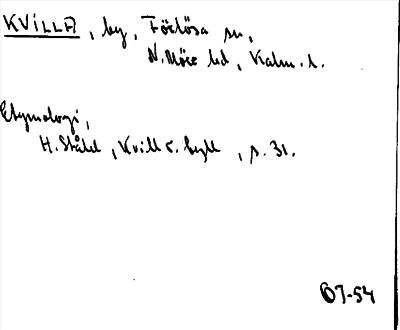 KVILLA, by, Förlösa sn,
N. Möre hd, Kalm. l.
Etymologi,
H. Ståhl, Kvill o. tyll, s. 31.
OJ-54